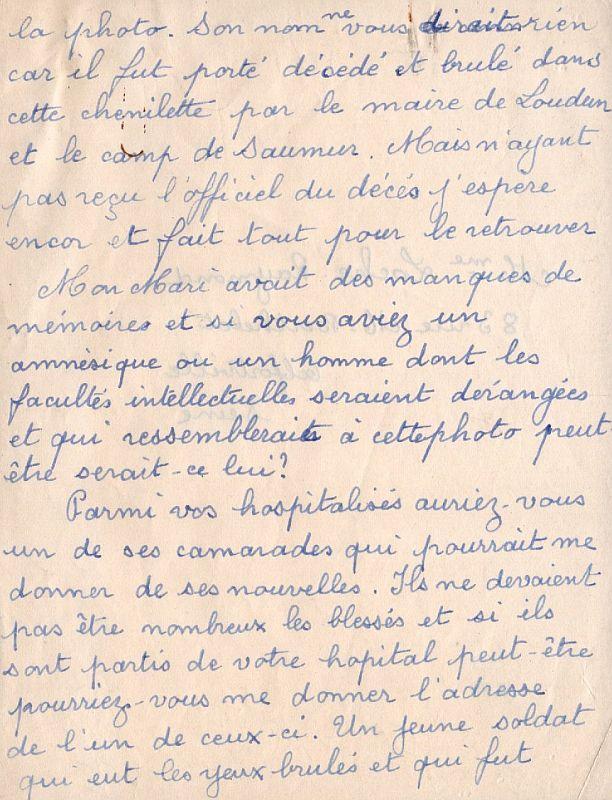 la photo. Son nom ne vous dirait rien
car il fut porté décédé et brulé dans
cette chenilette par le maire de Loudun
et le camp de Saumur. Mais n'ayant
pas reçu l'officiel du décés j'espere
encor et fait tout pour le retrouver
Mon Mari avait des manques de
mémoires et si vous aviez un
amnèsique ou un homme dont les
facultés intellectuelles seraient derangées
et qui ressemblerait à cettephoto peut
être serait-ce lui?
Parmi vos hospitalisés auriez-vous
un de ses camarades qui pourrait me
donner de ses nouvelles. Ils ne devaient
pas être nombreux les blessés et si ils
sont partis de votre hopital peut-être
pourriez-vous me donner l'adresse
de l'un de ceux-ci. Un jeune soldat
qui eut les yeux brulés et qui fut